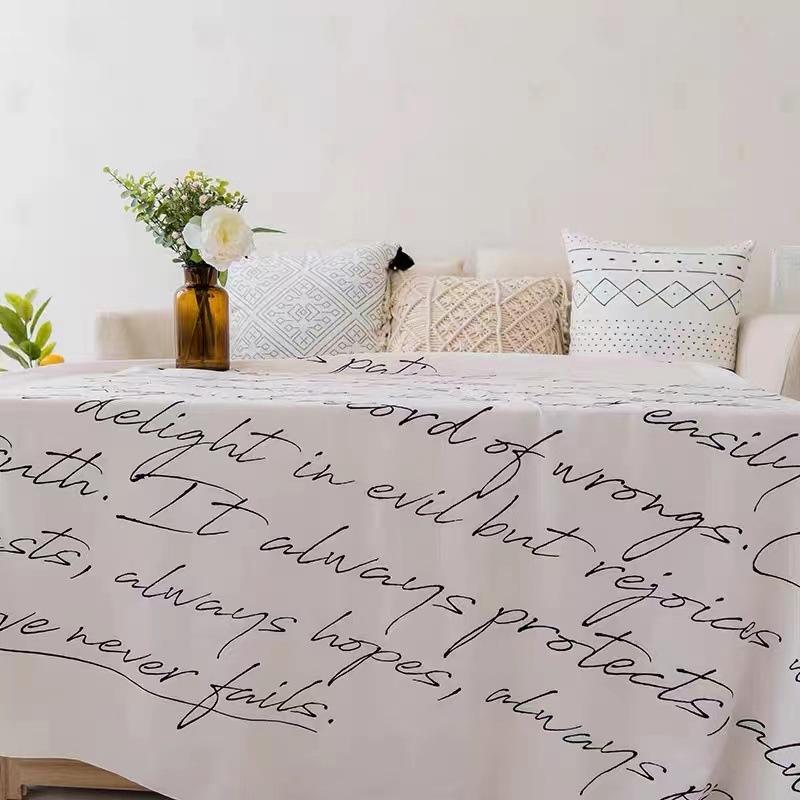 pat
cord of wrongs.
easily
delight in evil but rejoices
uth. It always protects, al
sts, always hopes, always p
ve never fails.